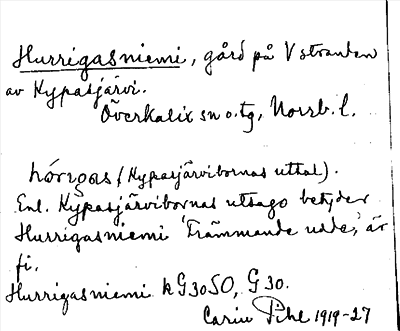 Hurrigasniemi, gård på V stranden
av Kypasjärvi.
Överkalix sn o. tg, Norrb. l.
hórigas (Kypasjärvibornas uttal).
Enl. Kypasjärvibornas utsago betyder
Hurrigasniemi 'Främmande udde', är
fi.
Hurrigasniemi k G30SO, G30.
Carin Pihl 1919-27